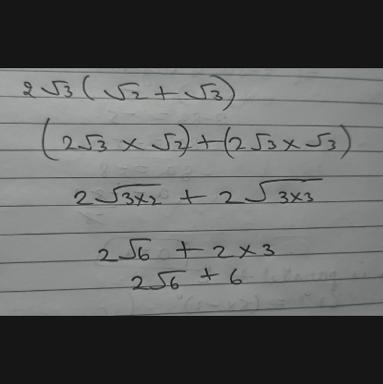 2√3 ( √2 + √3)
(2√3 × √2) + (2√3 × √3)
2√3×2 + 2√3×3
2√6 + 2 × 3
2√6 + 6